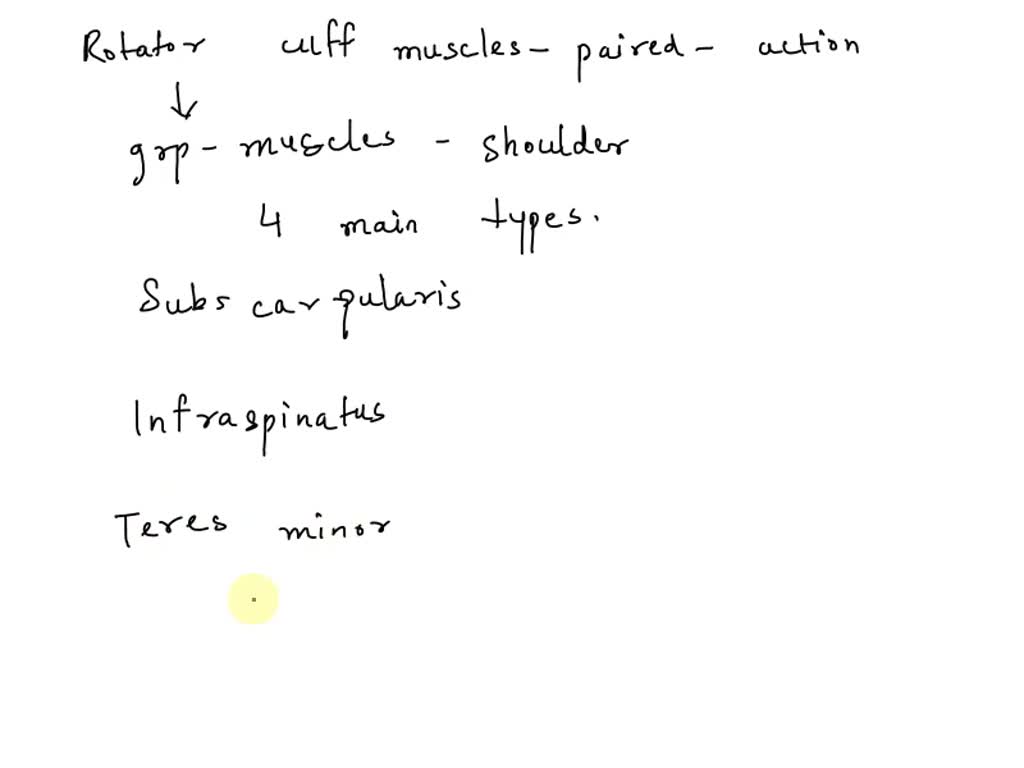 Rotator cuff muscles - paired - action
↓
grp - muscles - shoulder
4 main types.
Subscarpularis
Infraspinatus
Teres minor